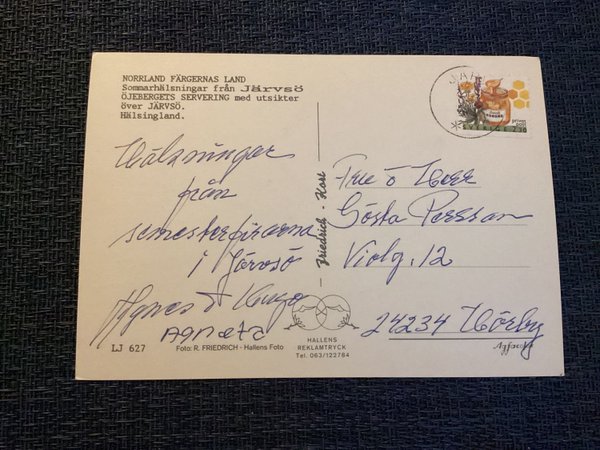 NORRLAND FÄRGERNAS LAND
Sommarhälsningar från Järvsö
ÖJEBERGETS SERVERING med utsikter
över JÄRVSÖ.
Hälsingland.
Hälsningar
från
semesterfirarna
i Järvsö
Agnes & Hugo
Agneta
LJ 627
Foto: R. FRIEDRICH - Hallens Foto
Friedrich - Kost
HALLENS
REKLAMTRYCK
Tel. 063/122784
SVERIGE
Fru o Herr
Gösta Persson
Violg. 12
24234 Hörby